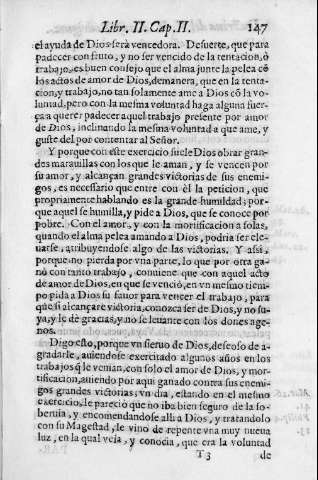 Libr. II. Cap. II. 147
el ayuda de Dios será vencedora. De suerte, que para
padecer con fruto, y no ser vencido de la tentacion, ò
trabajo, es buen consejo que el alma junte la pelea cõ
los actos de amor de Dios, demanera, que en la tenta-
cion, y trabajo, no tan solamente ame a Dios cõ la vo-
luntad, pero con la mesma voluntad haga alguna fuer-
ça a querer padecer aquel trabajo presente por amor
de Dios, inclinando la mesma voluntad a que ame, y
guste del por contentar al Señor.
Y porque con este exercicio suele Dios obrar gran-
des marauillas con los que le aman, y se vencen por
su amor, y alcançan grandes victorias de sus enemi-
gos, es necessario que entre con èl la peticion, que
propriamente hablando es la grande humildad; por-
que aquel se humilla, y pide a Dios, que se conoce por
pobre. Con el amor, y con la mortificacion a solas,
quando el alma pelea amando a Dios, podria ser ele-
uarse, atribuyendose algo de las victorias. Y assi,
porque no pierda por vna parte, lo que por otra ga-
nò con tanto trabajo, conuiene que con aquel acto
de amor de Dios, en que se venciò, en vn mesmo tiem-
po pida a Dios su fauor para vencer el trabajo, para
que si alcançare victoria, conozca ser de Dios, y no su-
ya, y le dè gracias, y no se leuante con los dones age-
nos.
Digo esto, porque vn sieruo de Dios, deseoso de a-
gradarle, auiendose exercitado algunos años en los
trabajos q̃ le venian, con solo el amor de Dios, y mor-
tificacion, auiendo por aqui ganado contra sus enemi-
gos grandes victorias; vn dia, estando en el mesmo
exercicio, le pareciò que no iba bien seguro de la so-
beruia, y encomendandose alli a Dios, y tratandolo
con su Magestad, le vino de repente vna muy nueua
luz, en la qual veìa, y conocìa, que era la voluntad
T 3 de